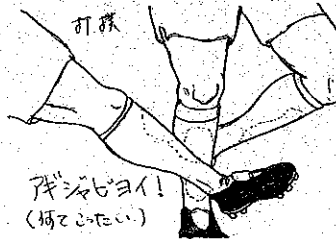 打撲
アギジャビヨイ！
(何てこったい。)